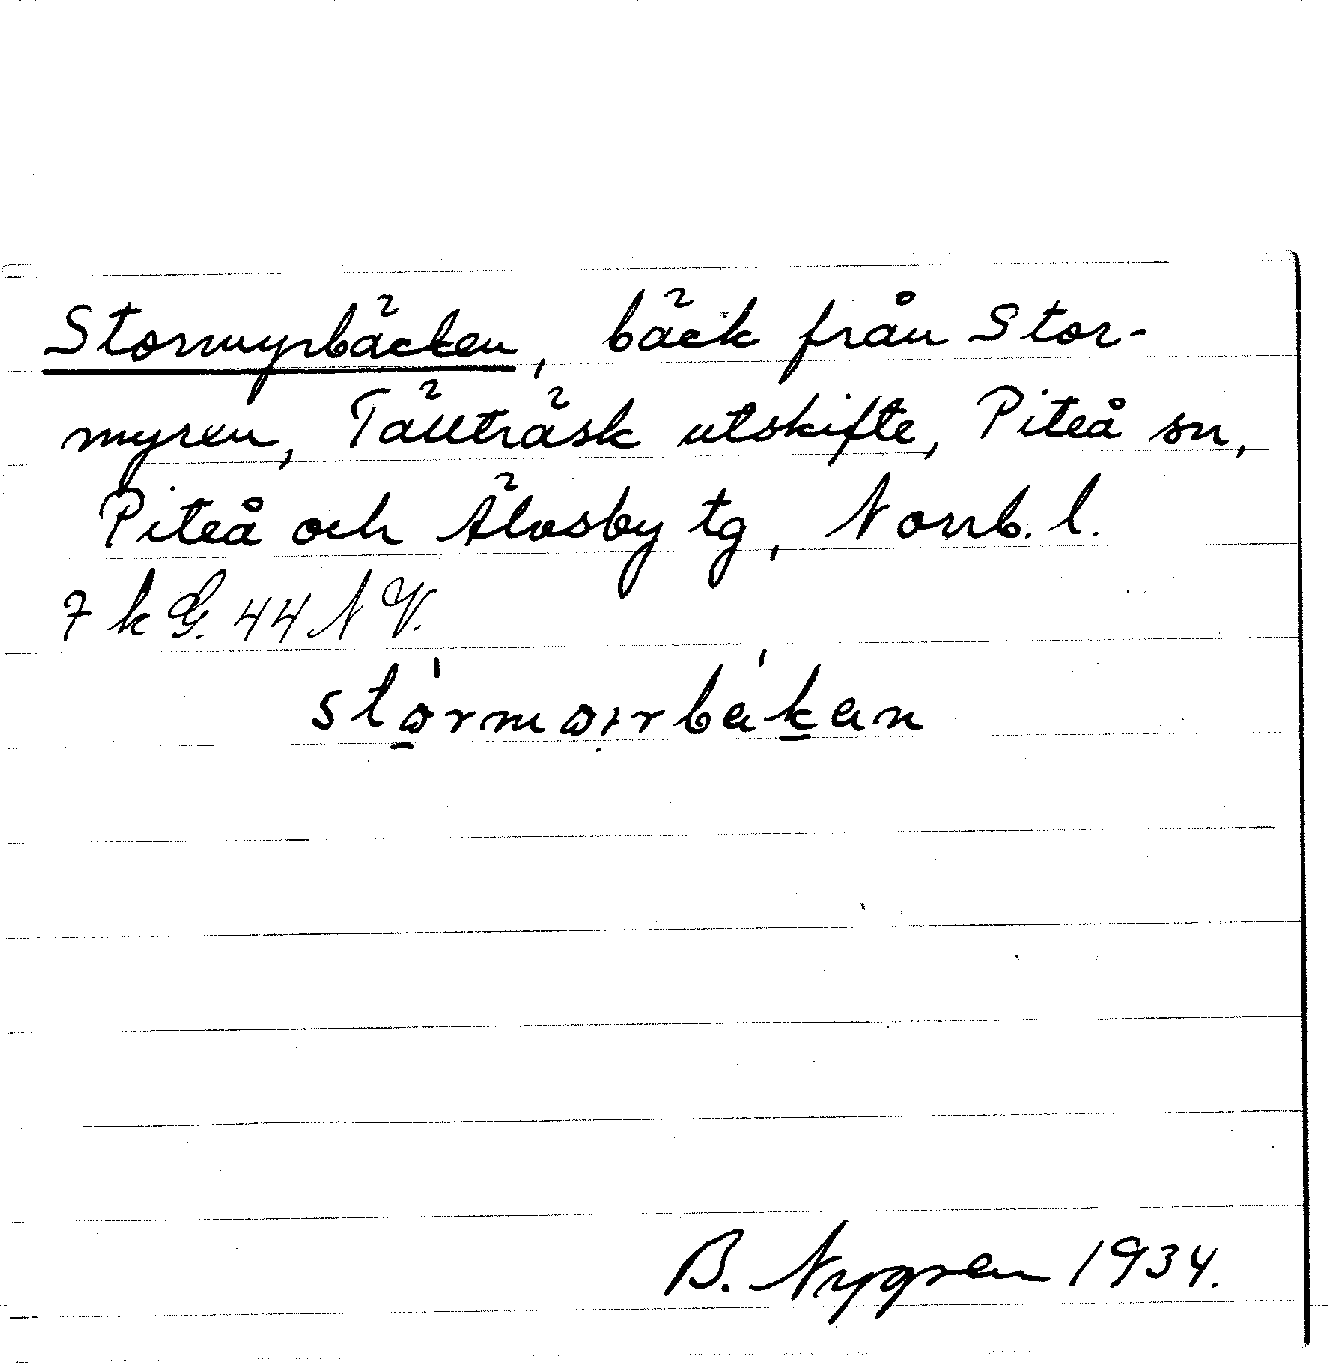 Stormyrbäcken, bäck från Stor-
myren, Tällträsk utskifte, Piteå sn,
Piteå och Älvsby tg, Norrb. l.
7 k G. 44 N V.
B. Nygren 1934.